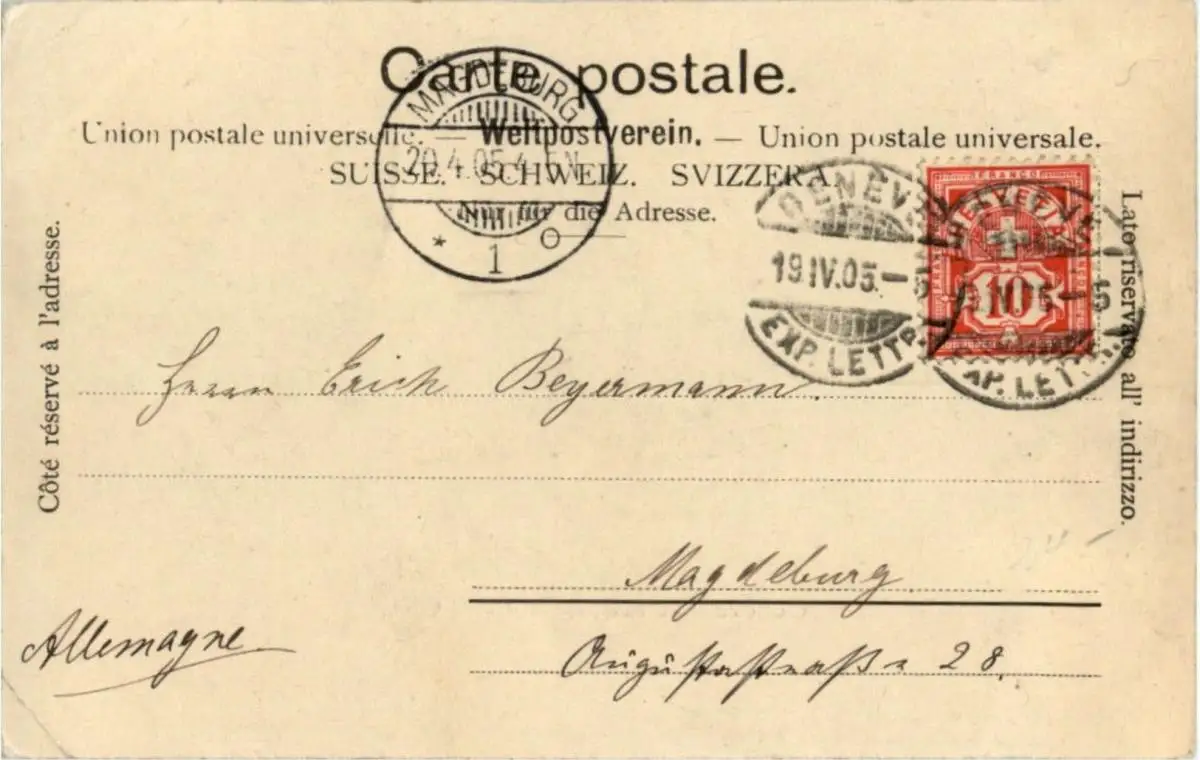 Carte postale.
Union postale universelle. — Weltpostverein. — Union postale universale.
SUISSE. SCHWEIZ. SVIZZERA.
Nur für die Adresse.
MAGDEBURG
20.4.05.4-5N
* 1 o
GENÈVE
19.IV.05.–5
EXP. LETTR.
GENÈVE
19.IV.05–5
EXP. LETTR.
FRANCO
HELVETIA
10
Côté réservé à l'adresse.
Lato riservato all' indirizzo.
Herrn Erich Beyermann.
Magdeburg
Allemagne
Augustastraße 28.